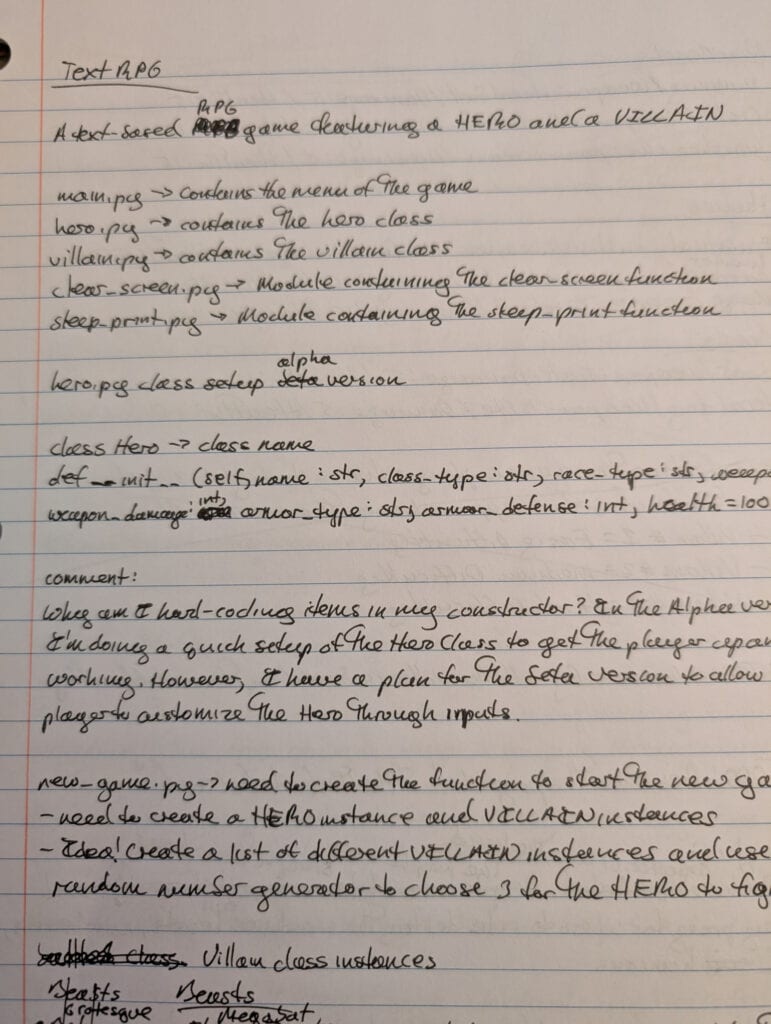 Text RPG
RPG
A text-based game featuring a HERO and a VILLAIN
main.py → contains the menu of the game
hero.py → contains the hero class
villain.py → contains the villain class
clear_screen.py → Module containing the clear_screen function
sleep_print.py → Module containing the sleep_print function
alpha
hero.py class setup beta version
class Hero → class name
def __init__ (self, name: str, class_type: str, race_type: str, weapo
int,
weapon_damage: armor_type: str, armor_defense: int, health = 100
comment:
Why am I hard-coding items in my constructor? In the Alpha ver
I'm doing a quick setup of the Hero Class to get the player up an
working. However, I have a plan for the beta version to allow
player to customize the Hero through inputs.
new_game.py → need to create the function to start the new ga
- need to create a HERO instance and VILLAIN instances
- Idea! Create a list of different VILLAIN instances and use
random number generator to choose 3 for the HERO to fig
class. Villain class instances
Beasts Beasts
Grotesque Megabat,